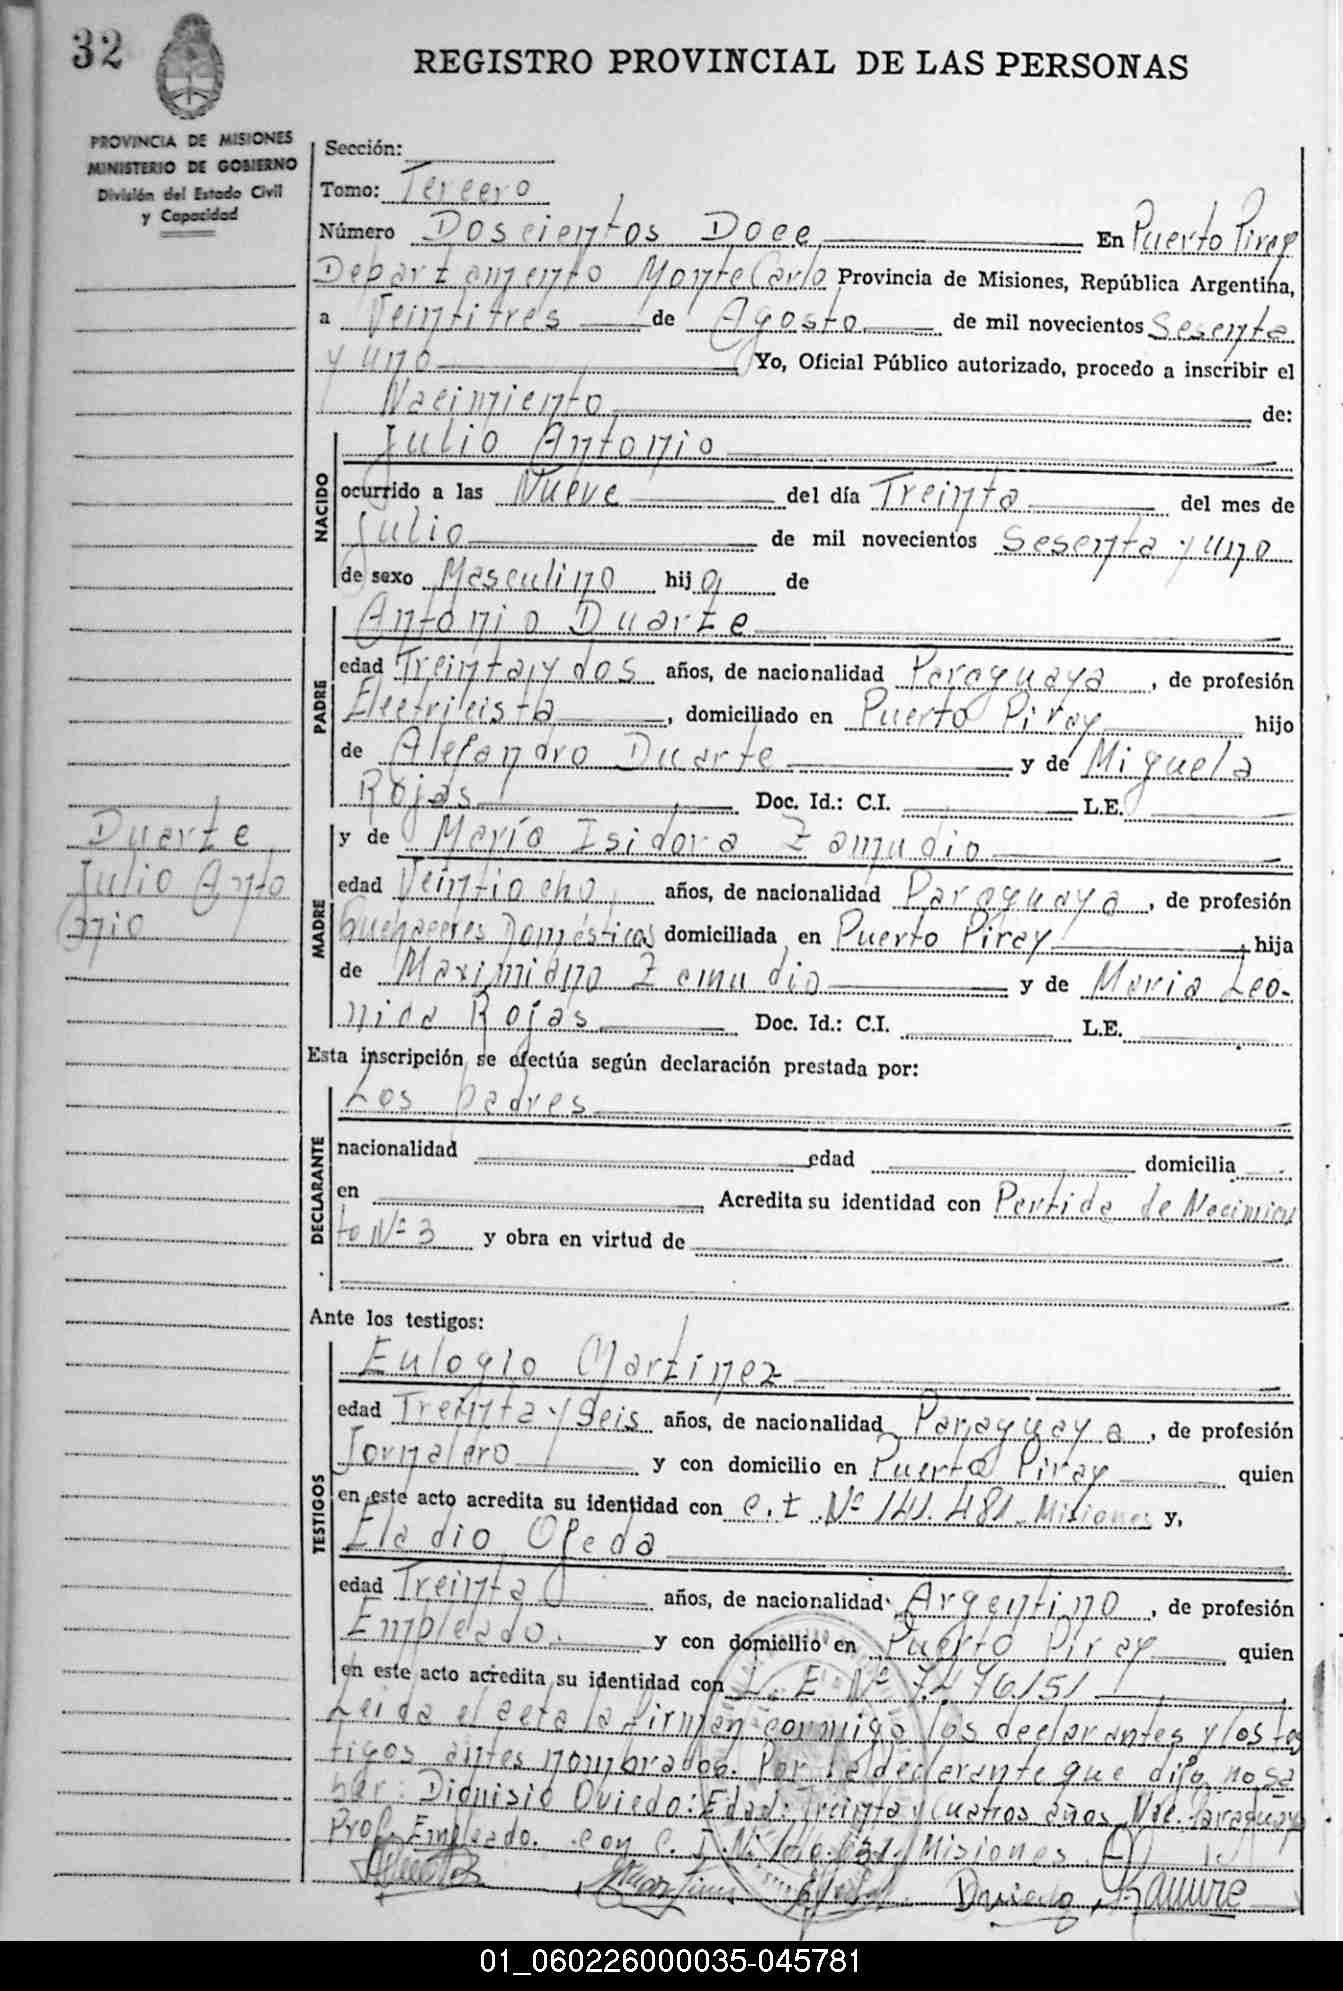 32
REGISTRO PROVINCIAL DE LAS PERSONAS
PROVINCIA DE MISIONES
MINISTERIO DE GOBIERNO
División del Estado Civil
y Capacidad
Sección:
Tomo: Tercero
Número Doscientos Doce En Puerto Piray
Departamento Montecarlo Provincia de Misiones, República Argentina,
a Veintitres de Agosto de mil novecientos Sesenta
y uno Yo, Oficial Público autorizado, procedo a inscribir el
Nacimiento de:
Julio Antonio
NACIDO
ocurrido a las Nueve del día Treinta del mes de
Julio de mil novecientos Sesenta y uno
de sexo Masculino hijo de
Antonio Duarte
PADRE
edad Treinta y dos años, de nacionalidad Paraguaya, de profesión
Electricista, domiciliado en Puerto Piray hijo
de Alejandro Duarte y de Miguela
Rojas Doc. Id.: C.I. L.E.
Duarte
Julio Anto
nio
MADRE
y de María Isidora Zamudio
edad Veintiocho años, de nacionalidad Paraguaya, de profesión
Quehaceres Domésticos domiciliada en Puerto Piray, hija
de Maximiano Zamudio y de Maria Leo-
nida Rojas Doc. Id.: C.I. L.E.
Esta inscripción se efectúa según declaración prestada por:
DECLARANTE
Los padres
nacionalidad edad domicilia
en Acredita su identidad con Partida de Nacimien
to Nº 3 y obra en virtud de
Ante los testigos:
TESTIGOS
Eulogio Martinez
edad Treinta y Seis años, de nacionalidad Paraguaya, de profesión
Jornalero y con domicilio en Puerto Piray quien
en este acto acredita su identidad con C. I. Nº 141.481 Misiones y,
Eladio Ojeda
edad Treinta años, de nacionalidad Argentino, de profesión
Empleado. y con domicilio en Puerto Piray quien
en este acto acredita su identidad con L. E. Nº 7.476151
Leida el acta la firman conmigo los declarantes y los tes
tigos antes nombrados. Por la declarante que dijo no sa
ber: Dionisio Oviedo: Edad: Treinta y Cuatros años Nac. Paraguaya
Prof. Empleado. con C. I. Nº Misiones
Oviedo Ramire
01_060226000035-045781